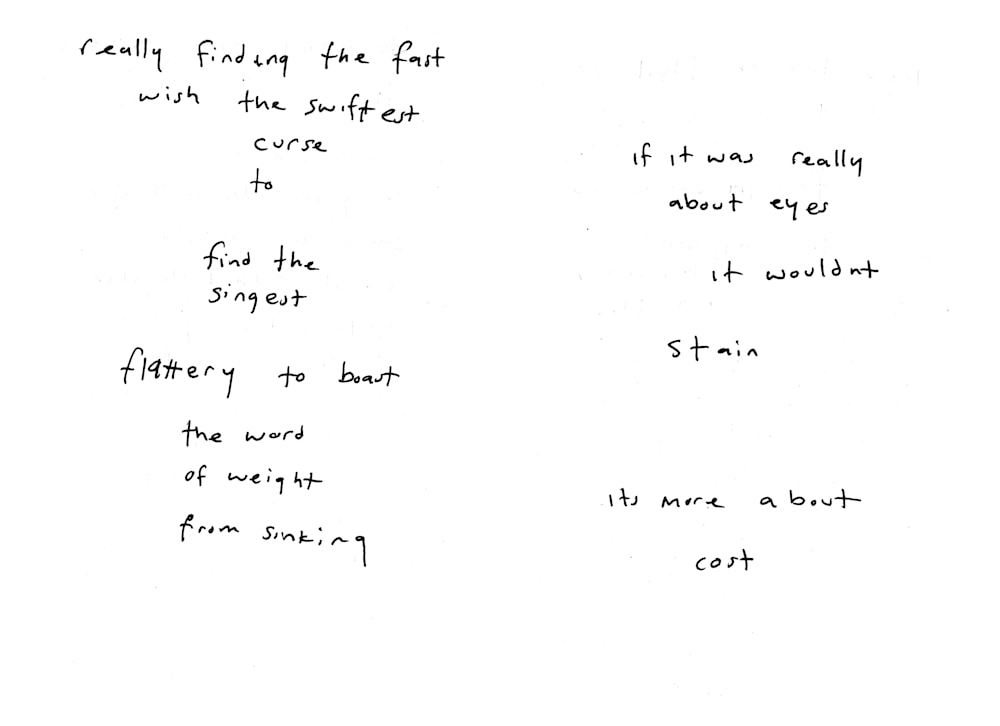 really finding the fast
wish the swiftest
curse
to
find the
singest
flattery to boast
the word
of weight
from sinking
if it was really
about eyes
it wouldnt
stain
its more about
cost